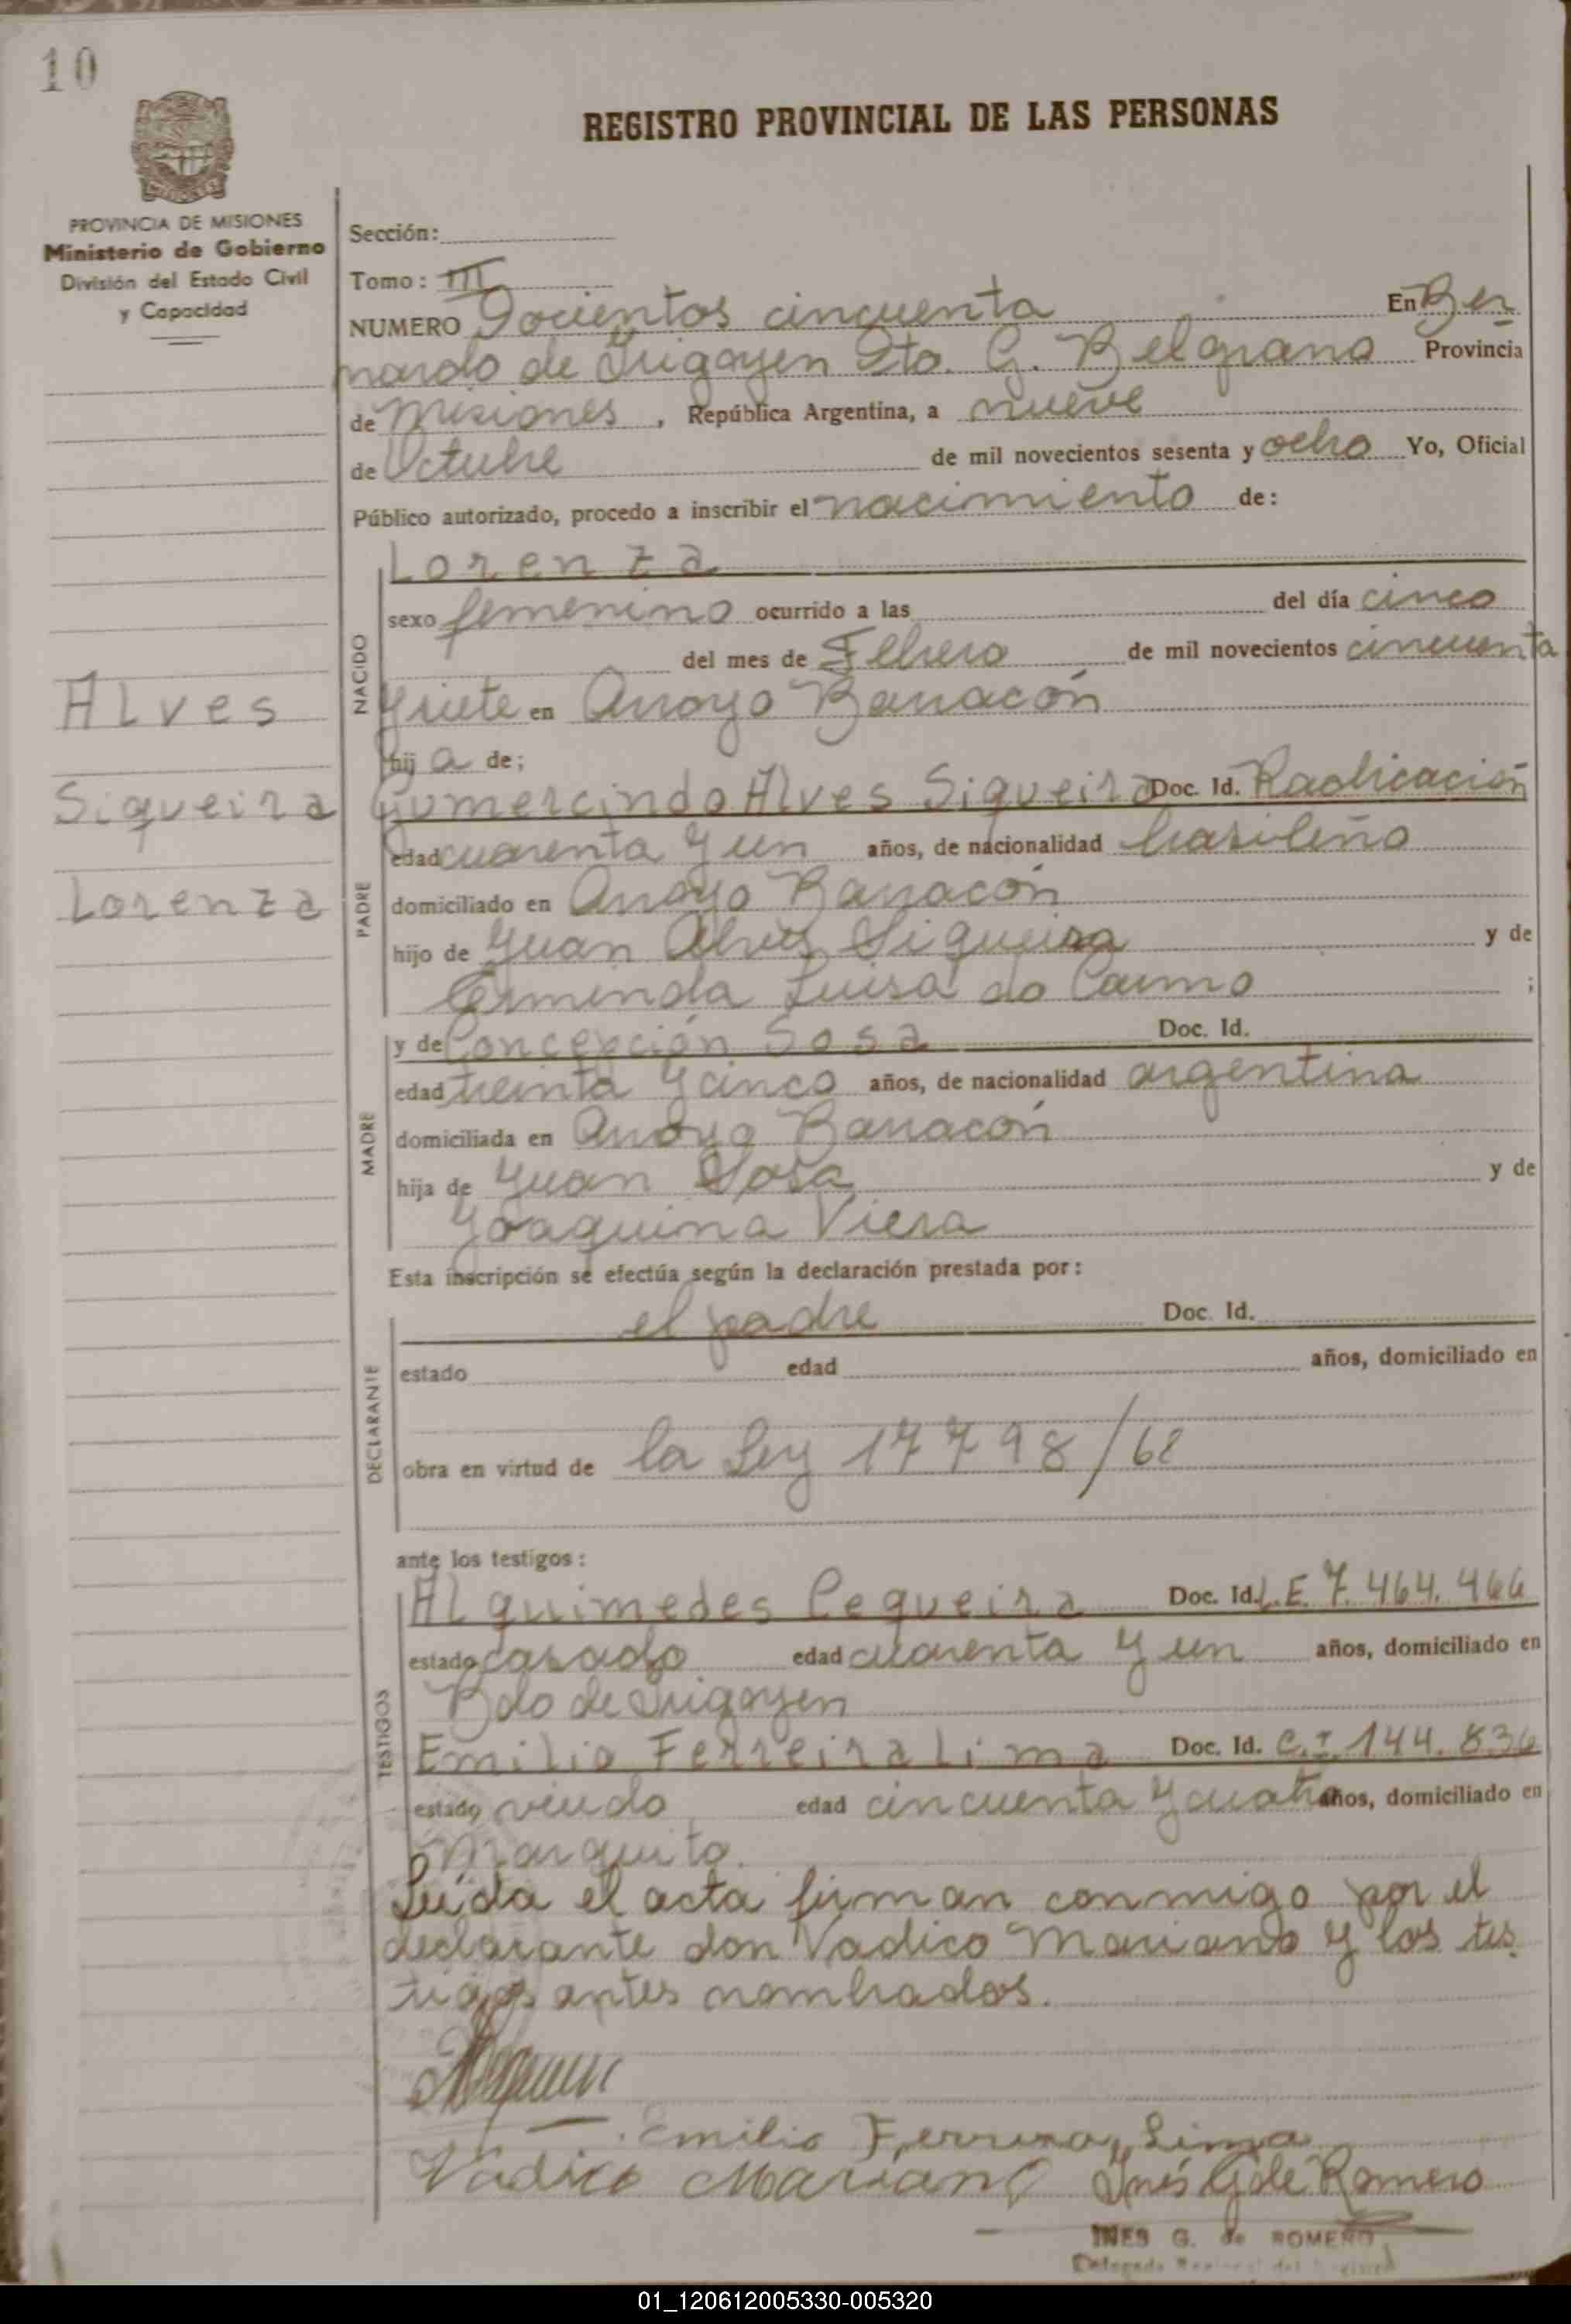 10
REGISTRO PROVINCIAL DE LAS PERSONAS
PROVINCIA DE MISIONES
Ministerio de Gobierno
División del Estado Civil
y Capacidad
Sección:
Tomo: III
NUMERO Docientos cincuenta En Ber
nardo de Irigoyen Dto. G. Belgrano Provincia
de Misiones, República Argentina, a nueve
de Octubre de mil novecientos sesenta y ocho Yo, Oficial
Público autorizado, procedo a inscribir el nacimiento de:
Lorenza
NACIDO
sexo femenino ocurrido a las del día cinco
del mes de Febrero de mil novecientos cincuenta
y siete en Arroyo Barracón
hija de;
Alves
Siqueira
Lorenza
Gumercindo Alves Siqueira Doc. Id. Radicación
PADRE
edad cuarenta y un años, de nacionalidad brasileño
domiciliado en Arroyo Barracón
hijo de Juan Alves Siqueira y de
Erminda Luisa do Carmo ;
MADRE
y de Concepción Sosa Doc. Id.
edad treinta y cinco años, de nacionalidad argentina
domiciliada en Arroyo Barracón
hija de Juan Sosa y de
Joaquina Viera
Esta inscripción se efectúa según la declaración prestada por:
DECLARANTE
el padre Doc. Id.
estado edad años, domiciliado en
obra en virtud de la Ley 17798/68
ante los testigos:
TESTIGOS
Alquimedes Cequeira Doc. Id. L.E. 7.464.466
estado casado edad cuarenta y un años, domiciliado en
Bdo de Irigoyen
Emilio Ferreira Lima Doc. Id. C.I. 144.836
estado viudo edad cincuenta y cuatro años, domiciliado en
Marquito.
Leida el acta firman conmigo por el
declarante don Vadico Mariano y los tes
tigos antes nombrados.
Emilio Ferreira Lima
Vadico Mariano Inés G de Romero
INES G. de ROMERO
01_120612005330-005320